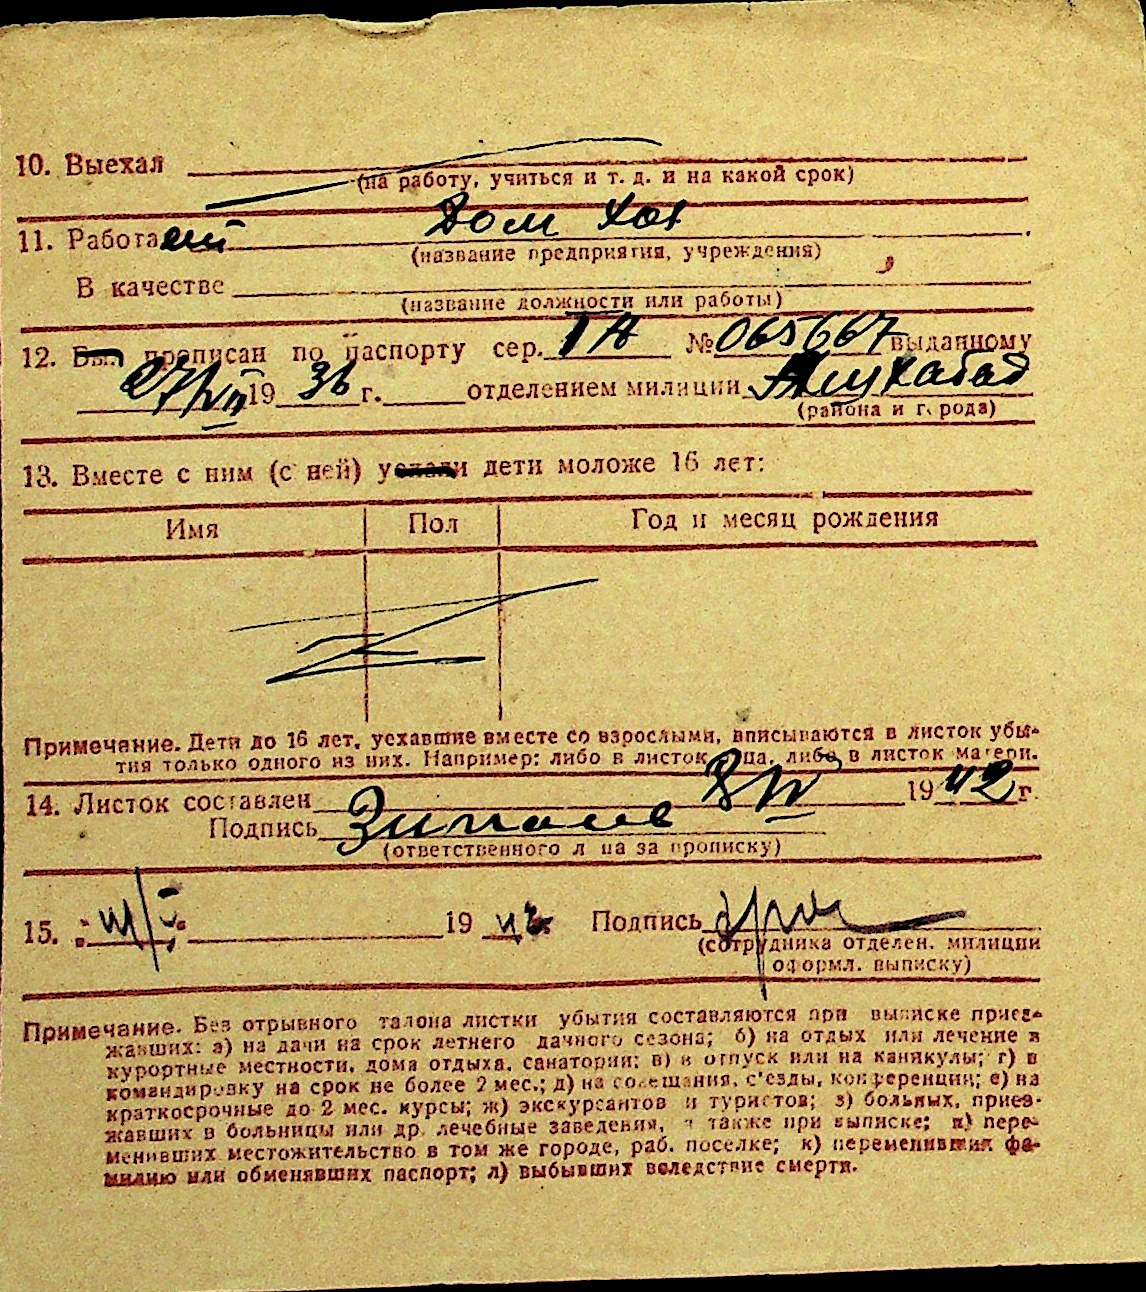 10. Выехал
(на работу, учиться и т. д. и на какой срок)
11. Работает Дом хоз
(название предприятия, учреждения)
В качестве
(название должности или работы)
12. Был прописан по паспорту сер. № 065667 выданному
27/VII 1936 г. отделением милиции Ашхабад
(района и города)
13. Вместе с ним (с ней) уехали дети моложе 16 лет:
Имя Пол Год и месяц рождения
Примечание. Дети до 16 лет, уехавшие вместе со взрослыми, вписываются в листок убы-
тия только одного из них. Например: либо в листок отца, либо в листок матери.
14. Листок составлен 1942 г.
Подпись
(ответственного лица за прописку)
15. 1942 Подпись
(сотрудника отделен. милиции
оформл. выписку)
Примечание. Без отрывного талона листки убытия составляются при выписке приез-
жавших: а) на дачи на срок летнего дачного сезона; б) на отдых или лечение в
курортные местности, дома отдыха, санатории; в) в отпуск или на каникулы; г) в
командировку на срок не более 2 мес.; д) на совещания, с'езды, конференции; е) на
краткосрочные до 2 мес. курсы; ж) экскурсантов и туристов; з) больных, приез-
жавших в больницы или др. лечебные заведения, а также при выписке; и) пере-
менивших местожительство в том же городе, раб. поселке; к) переменивших фа-
милию или обменявших паспорт; л) выбывших вследствие смерти.